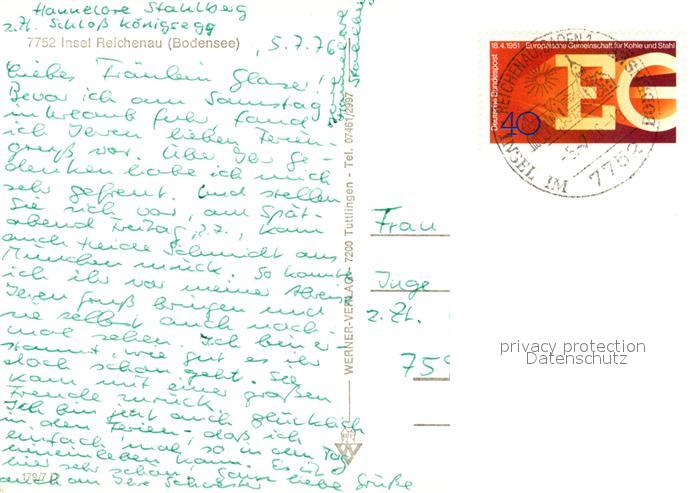 Hannelore Stahlberg
z.Zt. Schloß Königsegg
7752 Insel Reichenau (Bodensee)
5.7.76
Liebes Fräulein Glaser!
Bevor ich am Samstag
in Urlaub fuhr fand
ich Ihren lieben Ferien-
gruß vor. Über Ihr Ge-
denken habe ich mich
sehr gefreut. Und stellen
Sie sich vor, am Spät-
abend Freitag, kam
auch Heide Schmidt aus
München zurück. So konnte
ich ihr vor meiner Abreise
Ihren Gruß bringen und
sie selbst auch noch-
mal sehen. Ich bin er-
staunt, wie gut es ihr
doch schon geht. Sie
kam mit einer großen
Freude zurück.
Ich bin jetzt auch glücklich
in den Ferien, daß ich
einfach mal so in den Tag
hineinleben kann. Es ist
hier sehr schön. Ganz liebe Grüße
auch an Ihre Schwester
Hannelore
Stahlberg
179/7
WERNER-VERLAG · 7200 Tuttlingen - Tel. 07461/2997
18.4.1951 Europäische Gemeinschaft für Kohle und Stahl
Deutsche Bundespost
EG
40
INSEL IM BODENSEE
7752
Frau
Inge
z.Zt.
759
privacy protection
Datenschutz